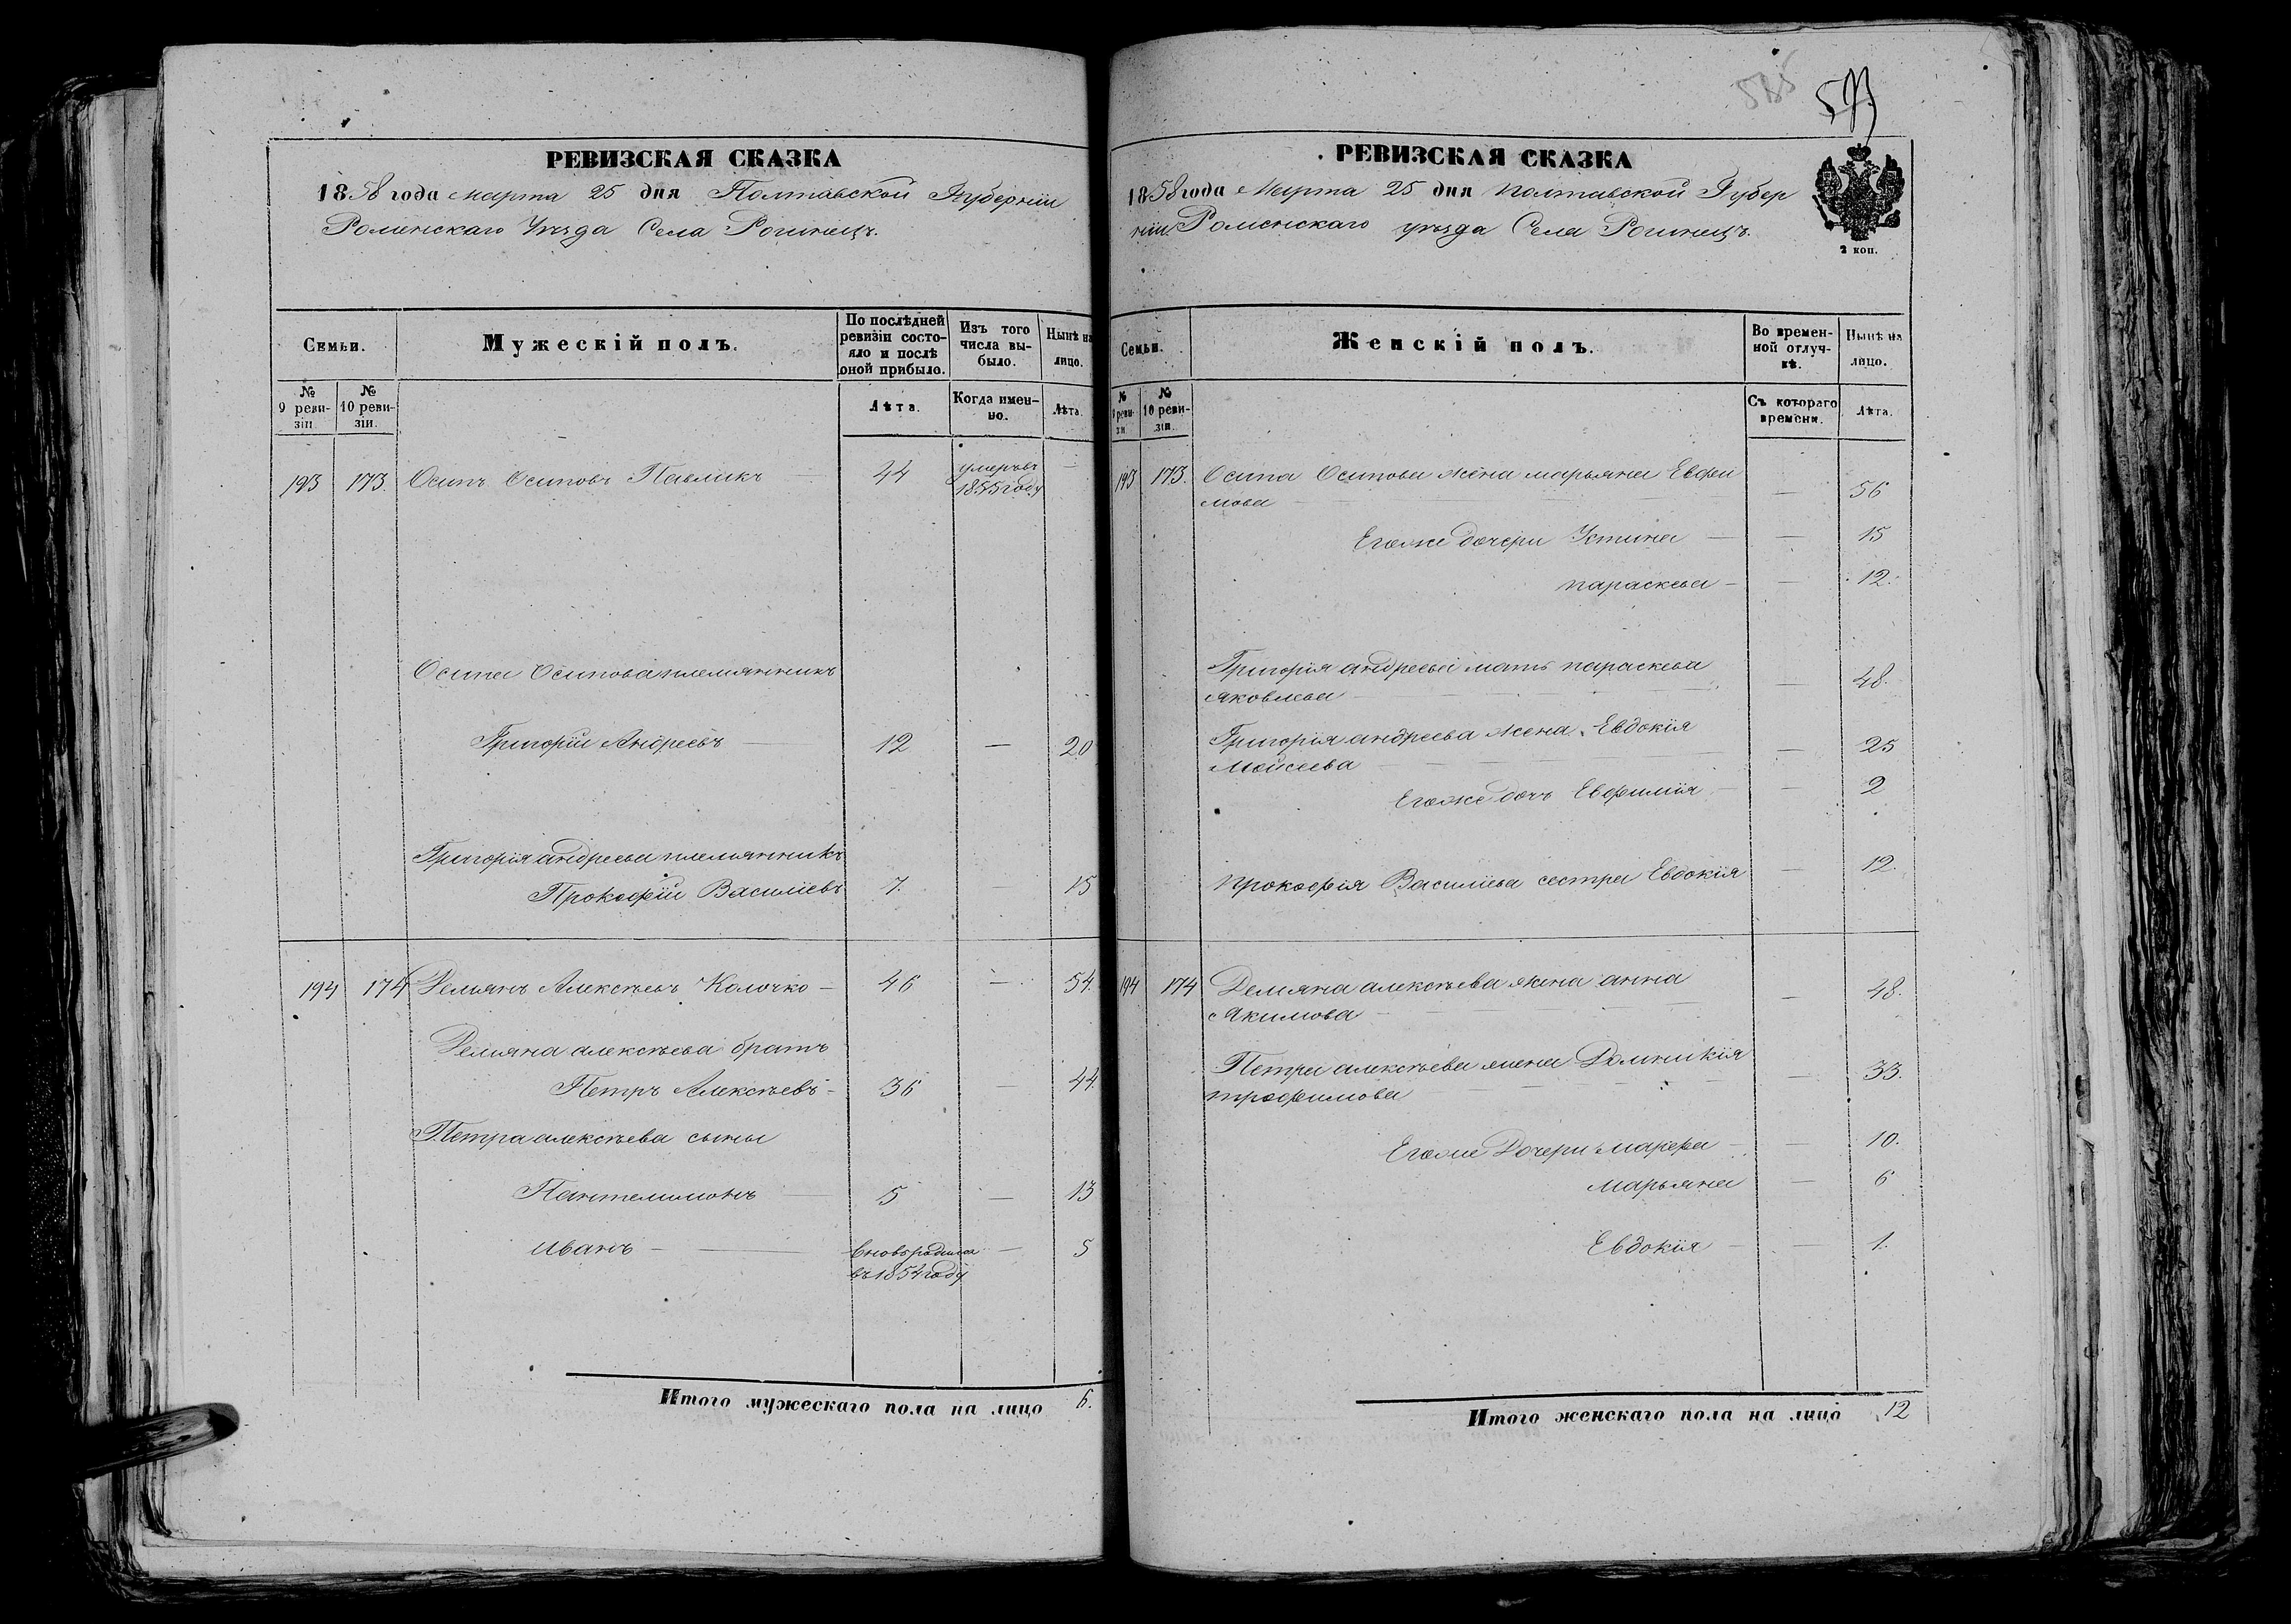 РЕВИЗСКАЯ СКАЗКА
1858 года марта 25 дня Полтавской Губерніи
Роменскаго Уѣзда Села Рогинецъ.
Семьи.
Мужескій полъ.
По послѣдней ревизіи состояло и послѣ оной прибыло.
Изъ того числа выбыло.
Нынѣ на лицо.
№ 9 ревизіи.
№ 10 ревизіи.
Лѣта.
Когда именно.
Лѣта.
193 173. Осипъ Осиповъ Павликъ 44 умеръ въ 1855 году
Осипа Осипова племянникъ
Григорій Андреевъ 12 — 20
Григорія андреева племянникъ
Прокофій Василіевъ 7. 15
194 174 Демьянъ Алексѣевъ Колочко — 46 — 54.
Демяна алексѣева братъ
Петръ Алексѣевъ — 36 — 44.
Петра алексѣева сыны
Пантелимонъ 5 — 13
Иванъ — вновь родился — 5
въ 1854 году
Итого мужескаго пола на лицо 6.
585
РЕВИЗСКАЯ СКАЗКА
1858 года Марта 25 дня Полтавской Губер
ніи Роменскаго уѣзда Села Рогинецъ.
2 коп.
Семьи.
Женскій полъ.
Во временной отлучкѣ.
Нынѣ на лицо.
№ 9 ревизіи
№ 10 ревизіи.
Съ котораго времени.
Лѣта.
193 173. Осипа Осипова жена марьяна Евфи
мова — 56
Егоже дочери Устина — — 15
параскева — — 12.
Григорія андреева мать параскева
яковлева — 48.
Григорія андреева жена Евдокія
Моисеева — 25
Егоже дочь Евфимія — — 2
прокофія Василіева сестра Евдокія — 12.
194 174 Демяна алексѣева жена анна
Акимова — 48.
Петра алексѣева жена Домникія
трофимова — 33.
Егоже Дочери марфа — — 10.
марьяна — 6
Евдокія — — 1.
Итого женскаго пола на лицо 12